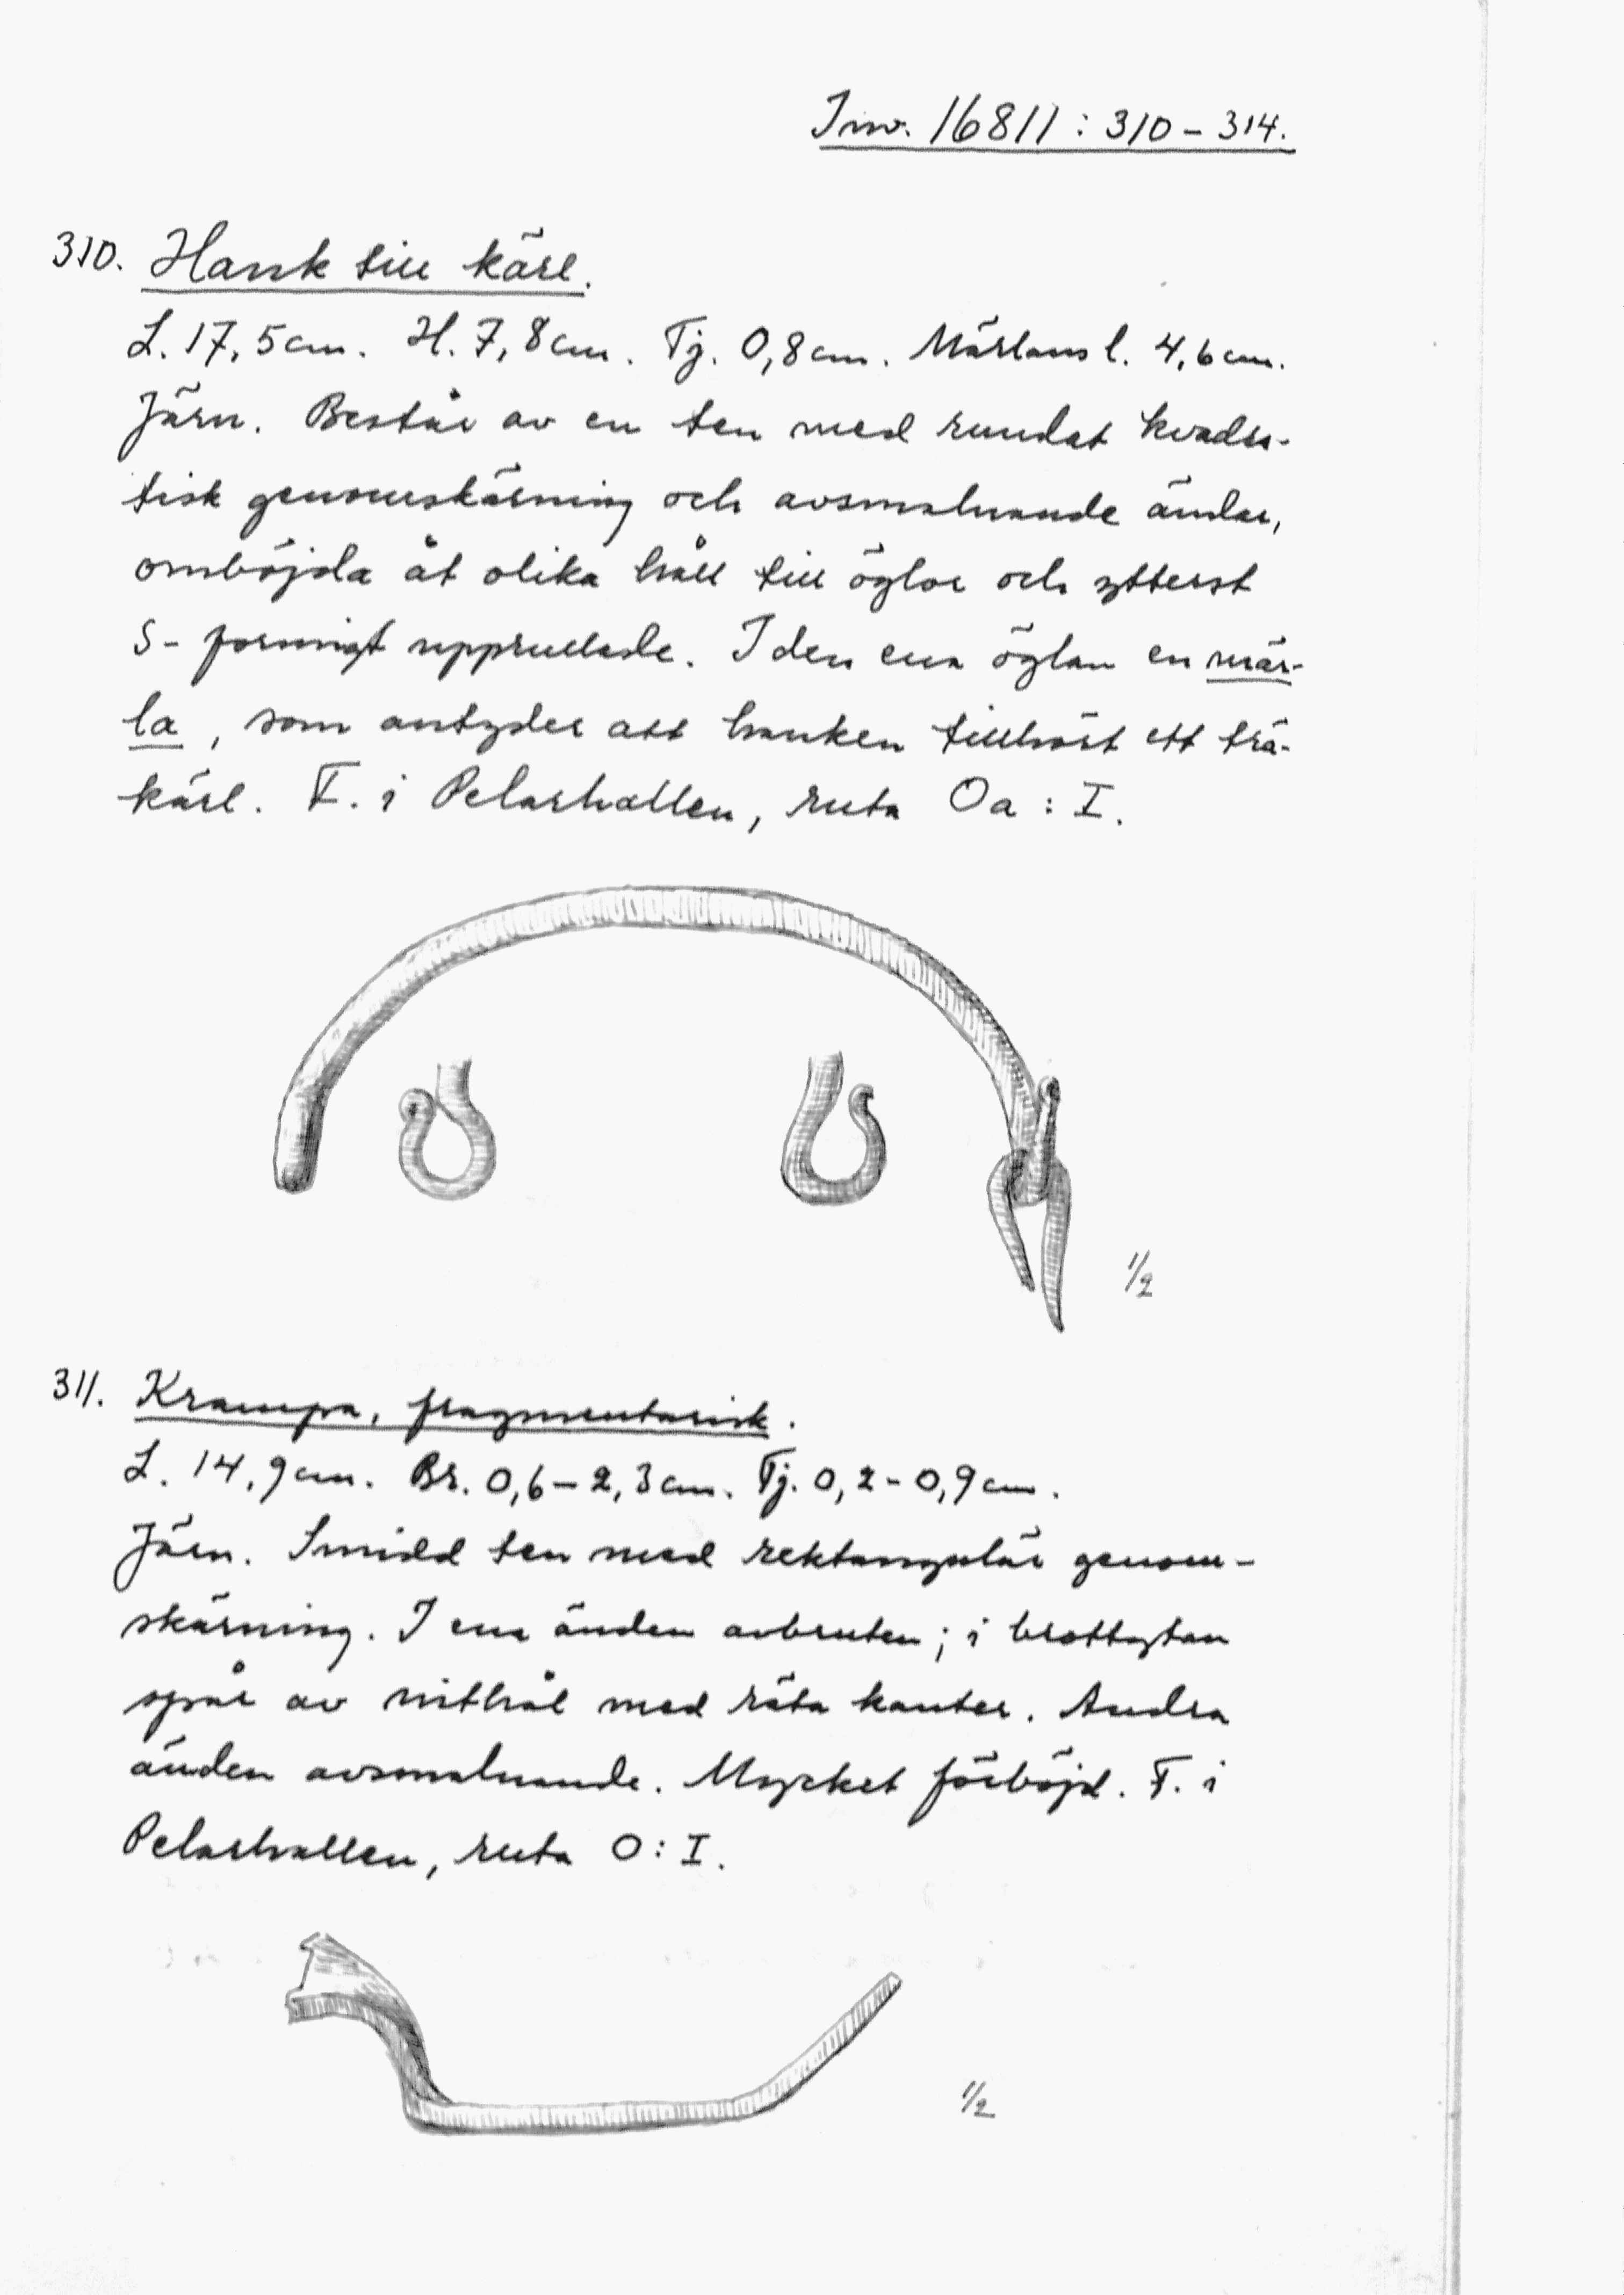 Inv. 16811 : 310 – 314.
310. Hank till kärl.
L. 17,5 cm. H. 7,8 cm. Tj. 0,8 cm. Märlans l. 4,6 cm.
Järn. Består av en ten med rundat kvadra-
tisk genomskärning och avsmalnande ändar,
omböjda åt olika håll till öglor och ytterst
S-formigt upprullade. I den ena öglan en mär-
la, som antyder att hanken tillhört ett trä-
kärl. F. i Pelarhallen, ruta Oa : I.
1/2
311. Krampa, fragmentarisk.
L. 14,9 cm. Br. 0,6 – 2,3 cm. Tj. 0,2 – 0,9 cm.
Järn. Smidd ten med rektangulär genom-
skärning. I ena änden avbruten; i brottytan
spår av nithål med räta kanter. Andra
änden avsmalnande. Mycket förböjd. F. i
Pelarhallen, ruta O : I.
1/2